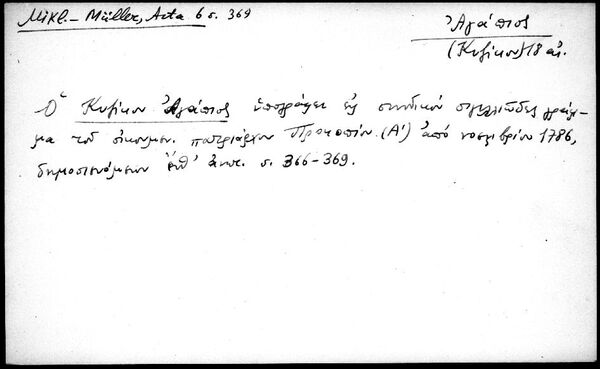 Mikl.-Müller, Acta 6 s. 369
Ἀγάπιος
(Κυζίκου) 18 αἰ.
Ὁ Κυζίκου Ἀγάπιος ὑπογράφει εἰς συνοδικὸν σιγιλλιῶδες γράμ-
μα τοῦ οἰκουμεν. πατριάρχου Προκοπίου (Α') ἀπὸ νοεμβρίου 1786,
δημοσιευόμενον s. 366-369.